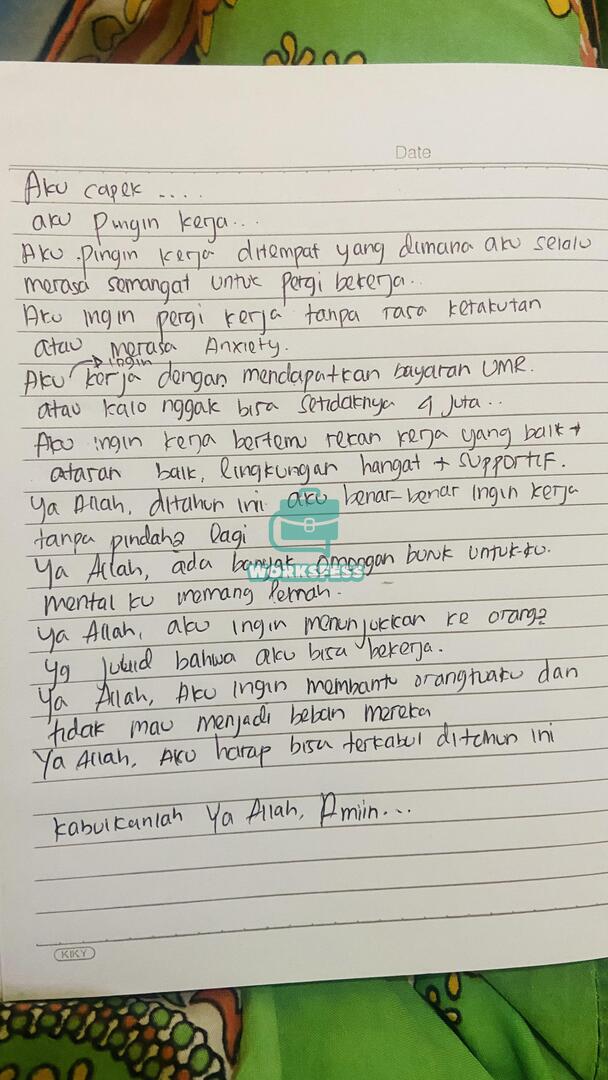 Date
Aku capek ....
aku pingin kerja...
Aku pingin kerja ditempat yang dimana aku selalu
merasa semangat untuk pergi bekerja..
Aku ingin pergi kerja tanpa rasa ketakutan
atau merasa Anxiety.
ingin
Aku kerja dengan mendapatkan bayaran UMR.
atau kalo nggak bisa setidaknya 4 juta..
Aku ingin kerja bertemu rekan kerja yang baik +
atasan baik, lingkungan hangat + supportif.
Ya Allah, ditahun ini aku benar-benar ingin kerja
tanpa pindah2 lagi
Ya Allah, ada banyak omongan buruk untukku.
WORKSFESS
mental ku memang lemah.
Ya Allah, aku ingin menunjukkan ke orang2
yg julid bahwa aku bisa bekerja.
Ya Allah, Aku ingin membantu orangtuaku dan
tidak mau menjadi beban mereka
Ya Allah, Aku harap bisa terkabul ditahun ini
kabulkanlah Ya Allah, Amiin...
KIKY